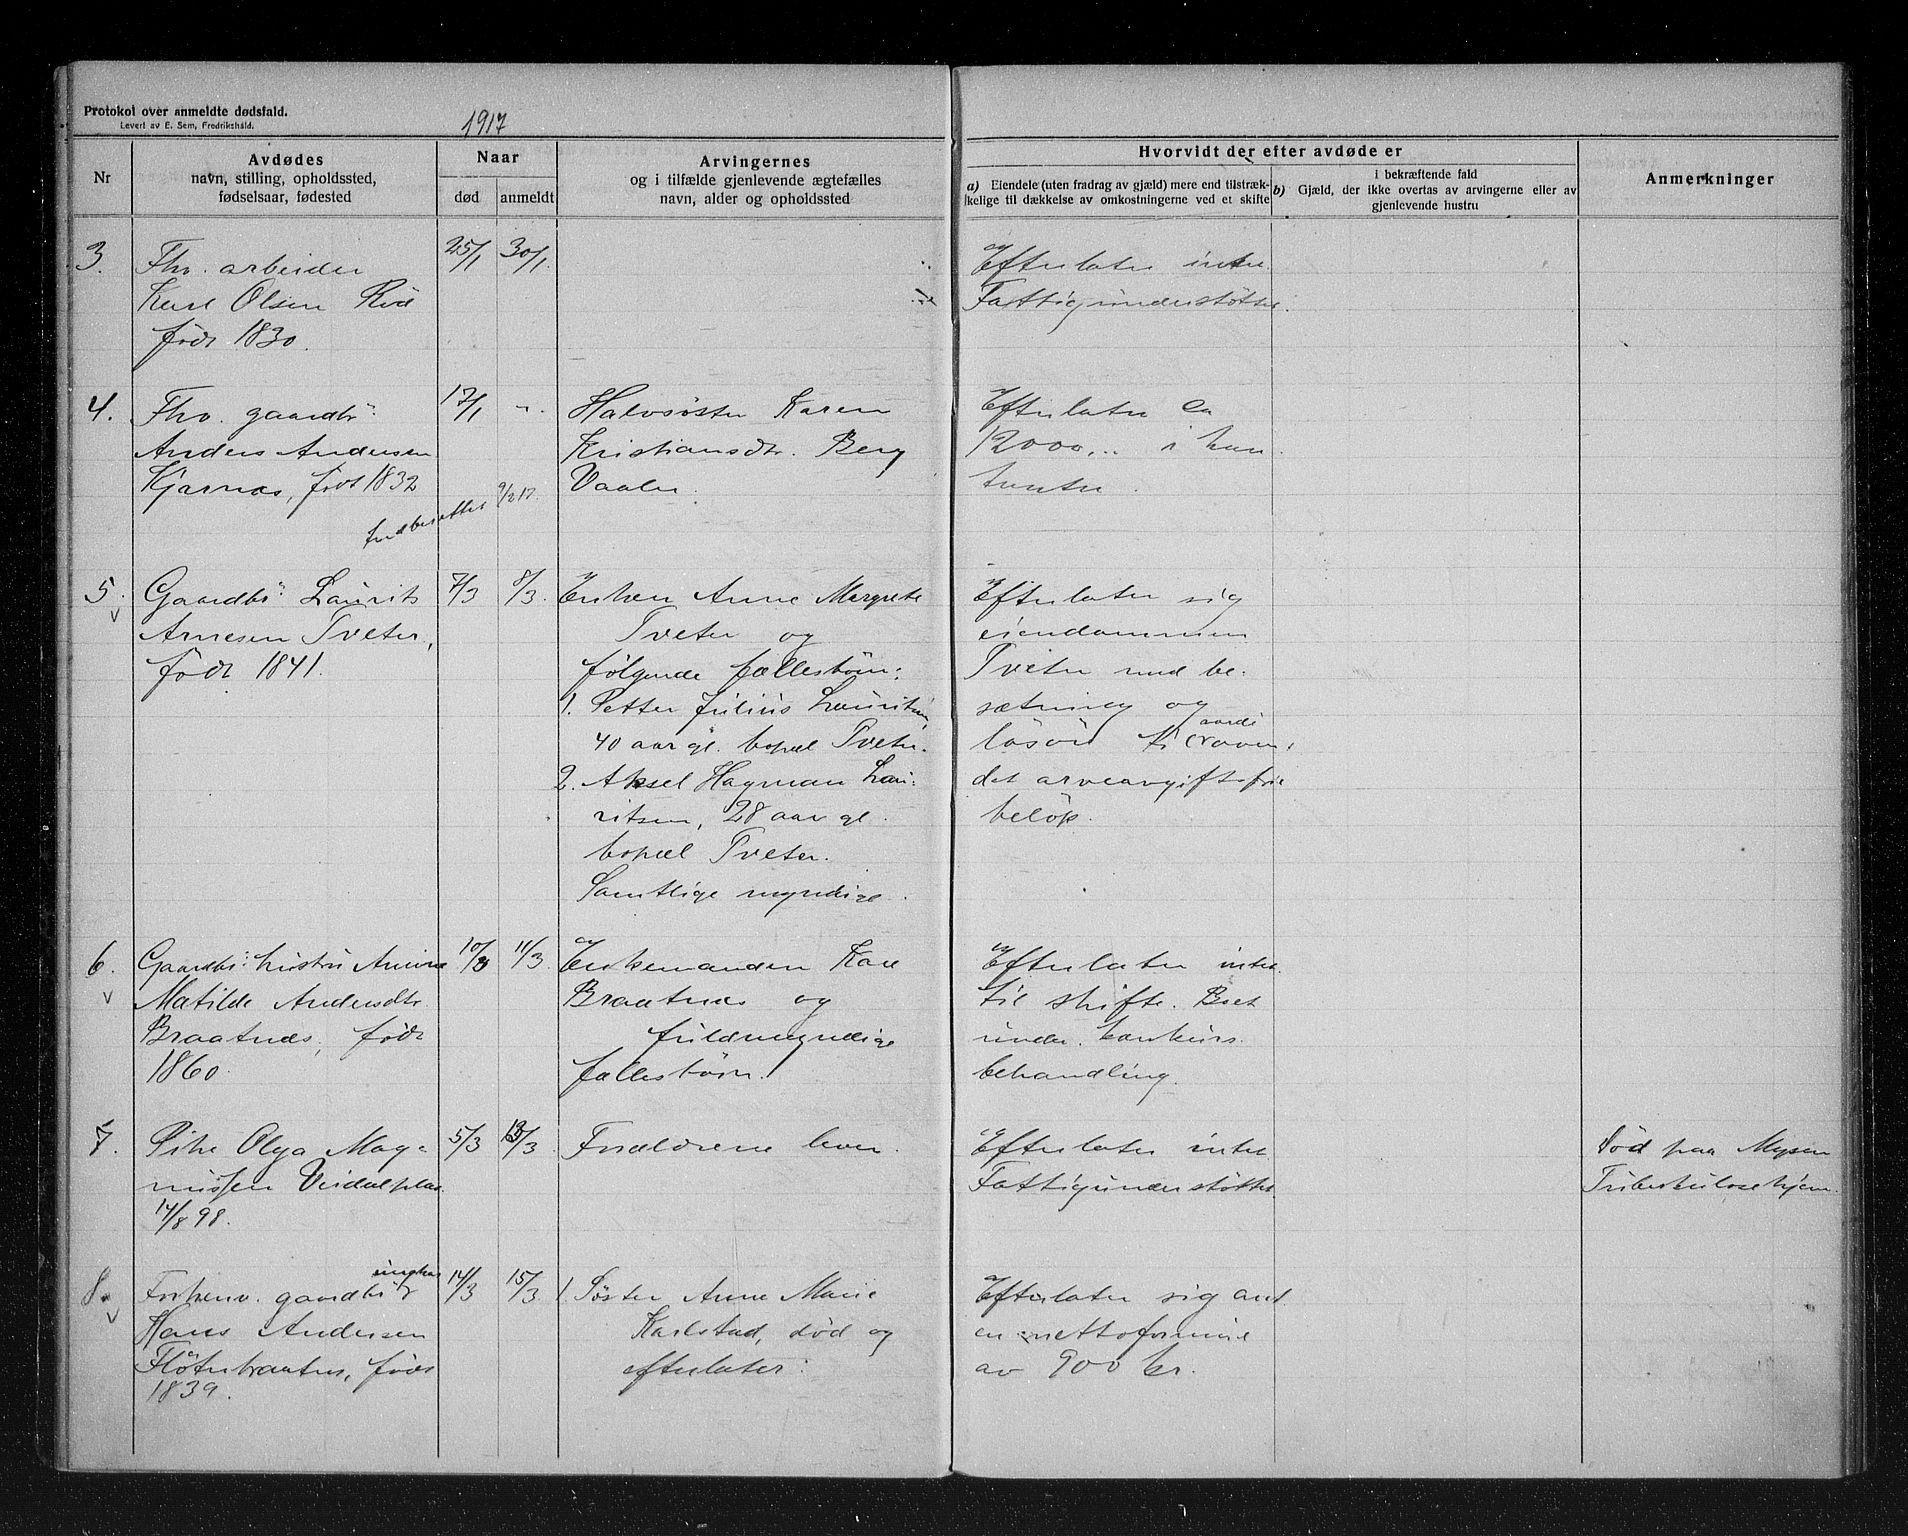 Protokol over anmeldte dødsfald.
Levert av E. Sem, Fredrikshald.
1917
Nr
Avdødes
navn, stilling, opholdssted,
fødselsaar, fødested
Naar
død
anmeldt
Arvingernes
og i tilfælde gjenlevende ægtefælles
navn, alder og opholdssted
Hvorvidt der efter avdøde er
a) Eiendele (uten fradrag av gjæld) mere end tilstræk-
kelige til dækkelse av omkostningerne ved et skifte
i bekræftende fald
b) Gjæld, der ikke overtas av arvingerne eller av
gjenlevende hustru
Anmerkninger
3. Fhv. arbeider
Karl Olsen Rød
født 1830.
25/1
30/1.
Efterlater intet.
Fattigunderstøttet.
4. Fhv. gaardbr:
Anders Andersen
Kjærnæs, født 1832
17/1
Halvsøster Karen
Kristiansdtr. Berg
Vaaler.
Efterlater ca
12000,.. i kon
tanter.
9/2 17.
5. Gaardbr: Laurits
Arnesen Tveter,
født 1841.
7/3
8/3.
Enken Anne Margrete
Tveter og
følgende fællesbørn:
1. Petter Julius Lauritsen,
40 aar gl. bopæl Tveter.
2. Aksel Hagman Lau-
ritsen, 28 aar gl.
bopæl Tveter.
Samtlige myndige.
Efterlater sig
eiendommen
Tveter med be-
sætning og
løsøre
det arveavgiftsfrie
beløp.
6. Gaardbr: hustru
Matilde Andersdtr
Braatnæs, født
1860.
10/3
11/3.
Enkemanden Karl
Braatnæs og
fuldmyndige
fællesbørn.
Efterlater intet
til skifte. Boet
under konkurs-
behandling.
7. Pike Olga Mag-
nussen
14/8 98.
5/3
13/3
Forældrene lever.
Efterlater intet
Fattigunderstøttet.
Død paa Mysen
Tuberkulosehjem.
8. Forhenv. gaardbr: ungkar
Hans Andersen
Fløterbraaten, født
1839.
14/3
15/3.
1. Søster Anne Marie
Karlstad, død og
efterlater:
Efterlater sig ant.
en nettoformue
av 900 kr.